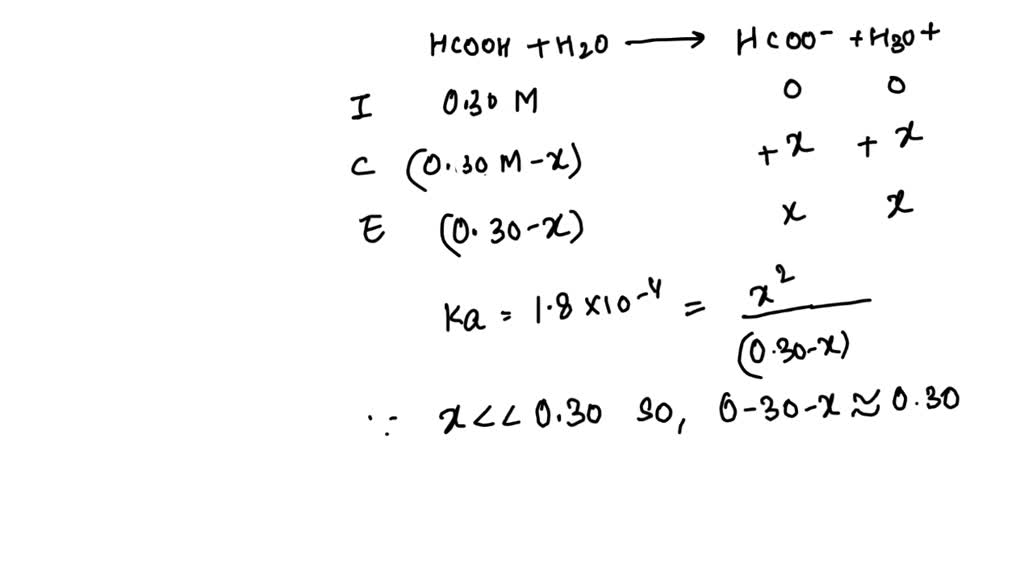 HCOOH + H2O ⟶ HCOO⁻ + H3O+
I 0.30 M 0 0
C (0.30 M - x) + x + x
E (0.30 - x) x x
Ka = 1.8 × 10⁻⁴ = x² / (0.30 - x)
∵ x << 0.30 so, 0-30-x ≈ 0.30